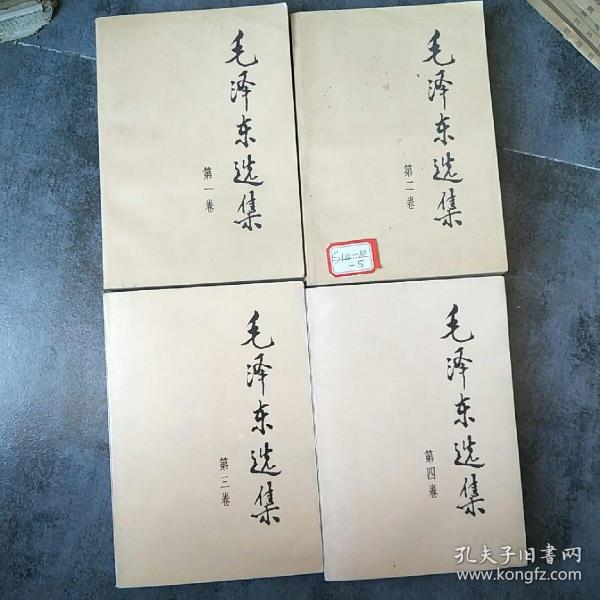 毛泽东选集
第一卷
毛泽东选集
第二卷
S14-10
-5
毛泽东选集
第三卷
毛泽东选集
第四卷
孔夫子旧书网
www.kongfz.com